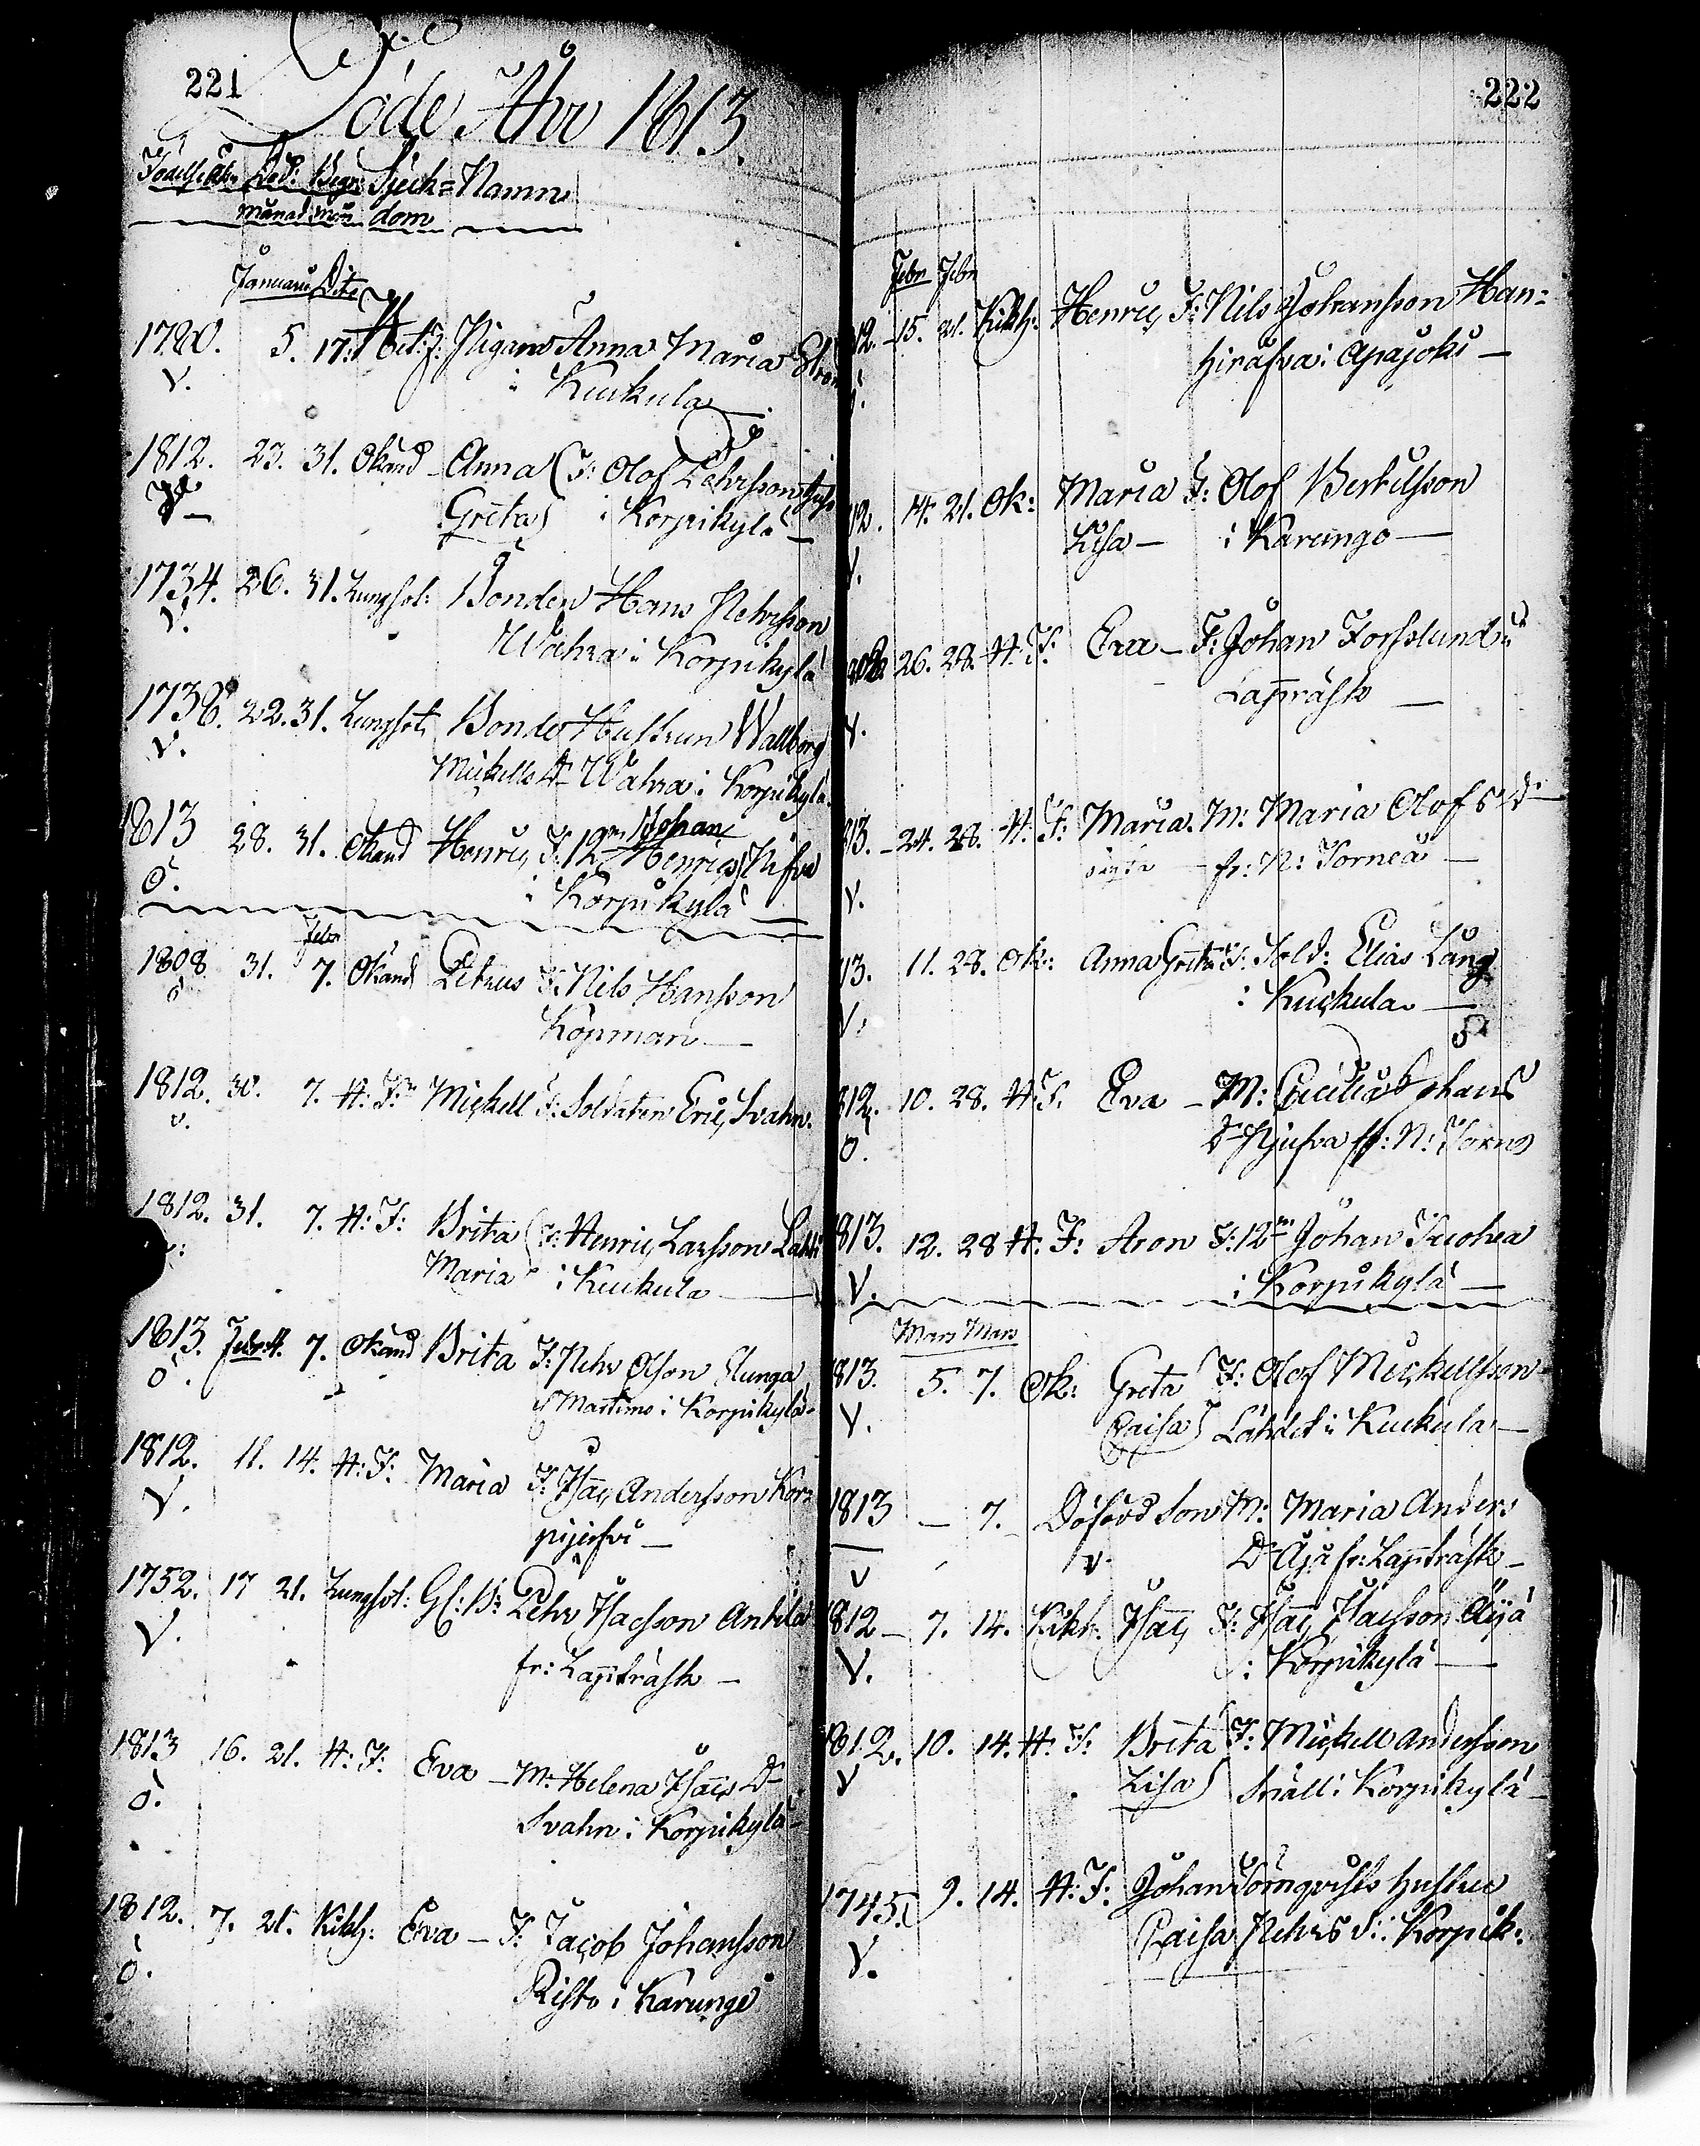 221
Döde Åhr 1813.
Födelse Åhr Död: Begr: Sjuk= Namn
månad mån dom
Januarii Dito
1780. 5. 17. Het: f: Pigan Anna Maria Ström
V. i Kuckula
1812. 23. 31. Okänd Anna F: Olof Pehrsson
V Greta i Korpikylä
1734. 26. 31. Lungsot: Bonden Hans Pehrsson
V. Wahra i Korpikylä
1736. 22. 31. Lungsot: Bonde Hustrun Wallborg
V. Mickells Dr Wahra i Korpikylä
Johan
1813 28. 31. Okänd Henric F: 12m Henrics Kifva
O. i Korpikylä
Febr
1808 31. 7. Okänd Petrus F: Nils Hansson
o Köpman
1812. 30. 7. H: F: Mickell F: Soldaten Eric Svahn.
v.
1812. 31. 7. H: F: Brita F: Henric Larsson Lahti
Maria i Kuckula
1813. Febr 4. 7. Okänd Brita F: Pehr Olson
O. Martimo i Korpikylä
1812. 11. 14. H: F: Maria F: Isac Andersson Kor=
V. pijerfvi
1752. 17 21. Lungsot: Gl: B: Pehr Isacsson Antila
V. fr: Lappträsk
1813 16. 21. H: F: Eva M: Helena Isacs Dr
O. Svahn i Korpikylä
1812. 7. 21. Kikh: Eva F: Jacob Johansson
O. Risto i Karungi
222
Febr Febr
12. 15. 21. Kikh: Henric F: Nils Johansson Han=
hiräfva i Apajoki
12. 14. 21. Ok: Maria F: Olof Bertilsson
V. Lisa i Karungo
26. 28. H: F: Eva F: Johan Forsslund i
V. Lappräsk
13. 24. 28. H: F: Maria. M: Maria Olofs Dr
V. fr: N: Torneå
13. 11. 28. Ok: Anna Greta F: Sold: Elias Lång
V. i Kuckula
812. 10. 28. H: F: Eva M: Cecilia Johans
O. Dr Njufva fr: N: Torne
813. 12. 28 H: F: Aron F: 12m Johan Tuohea
V. i Korpikylä
Mars Mars
813. 5. 7. Ok: Greta F: Olof Mickellsson
V. Caisa Lahdet i Kuckula
1813 7. Döfödd Son M: Maria Anders
V v. Dr Äjä fr: Lappträsk
812 7. 14. Kikh. Isac F: Isac Isacsson Äijä
V. i Korpikylä
1812. 10. 14. H: F: Brita F: Mickell Andersson
V Lisa Snäll i Korpikylä
1745. 9. 14. H: F: Johan Törnqvists hustru
V. Caisa Pehrs d: i Korpik: